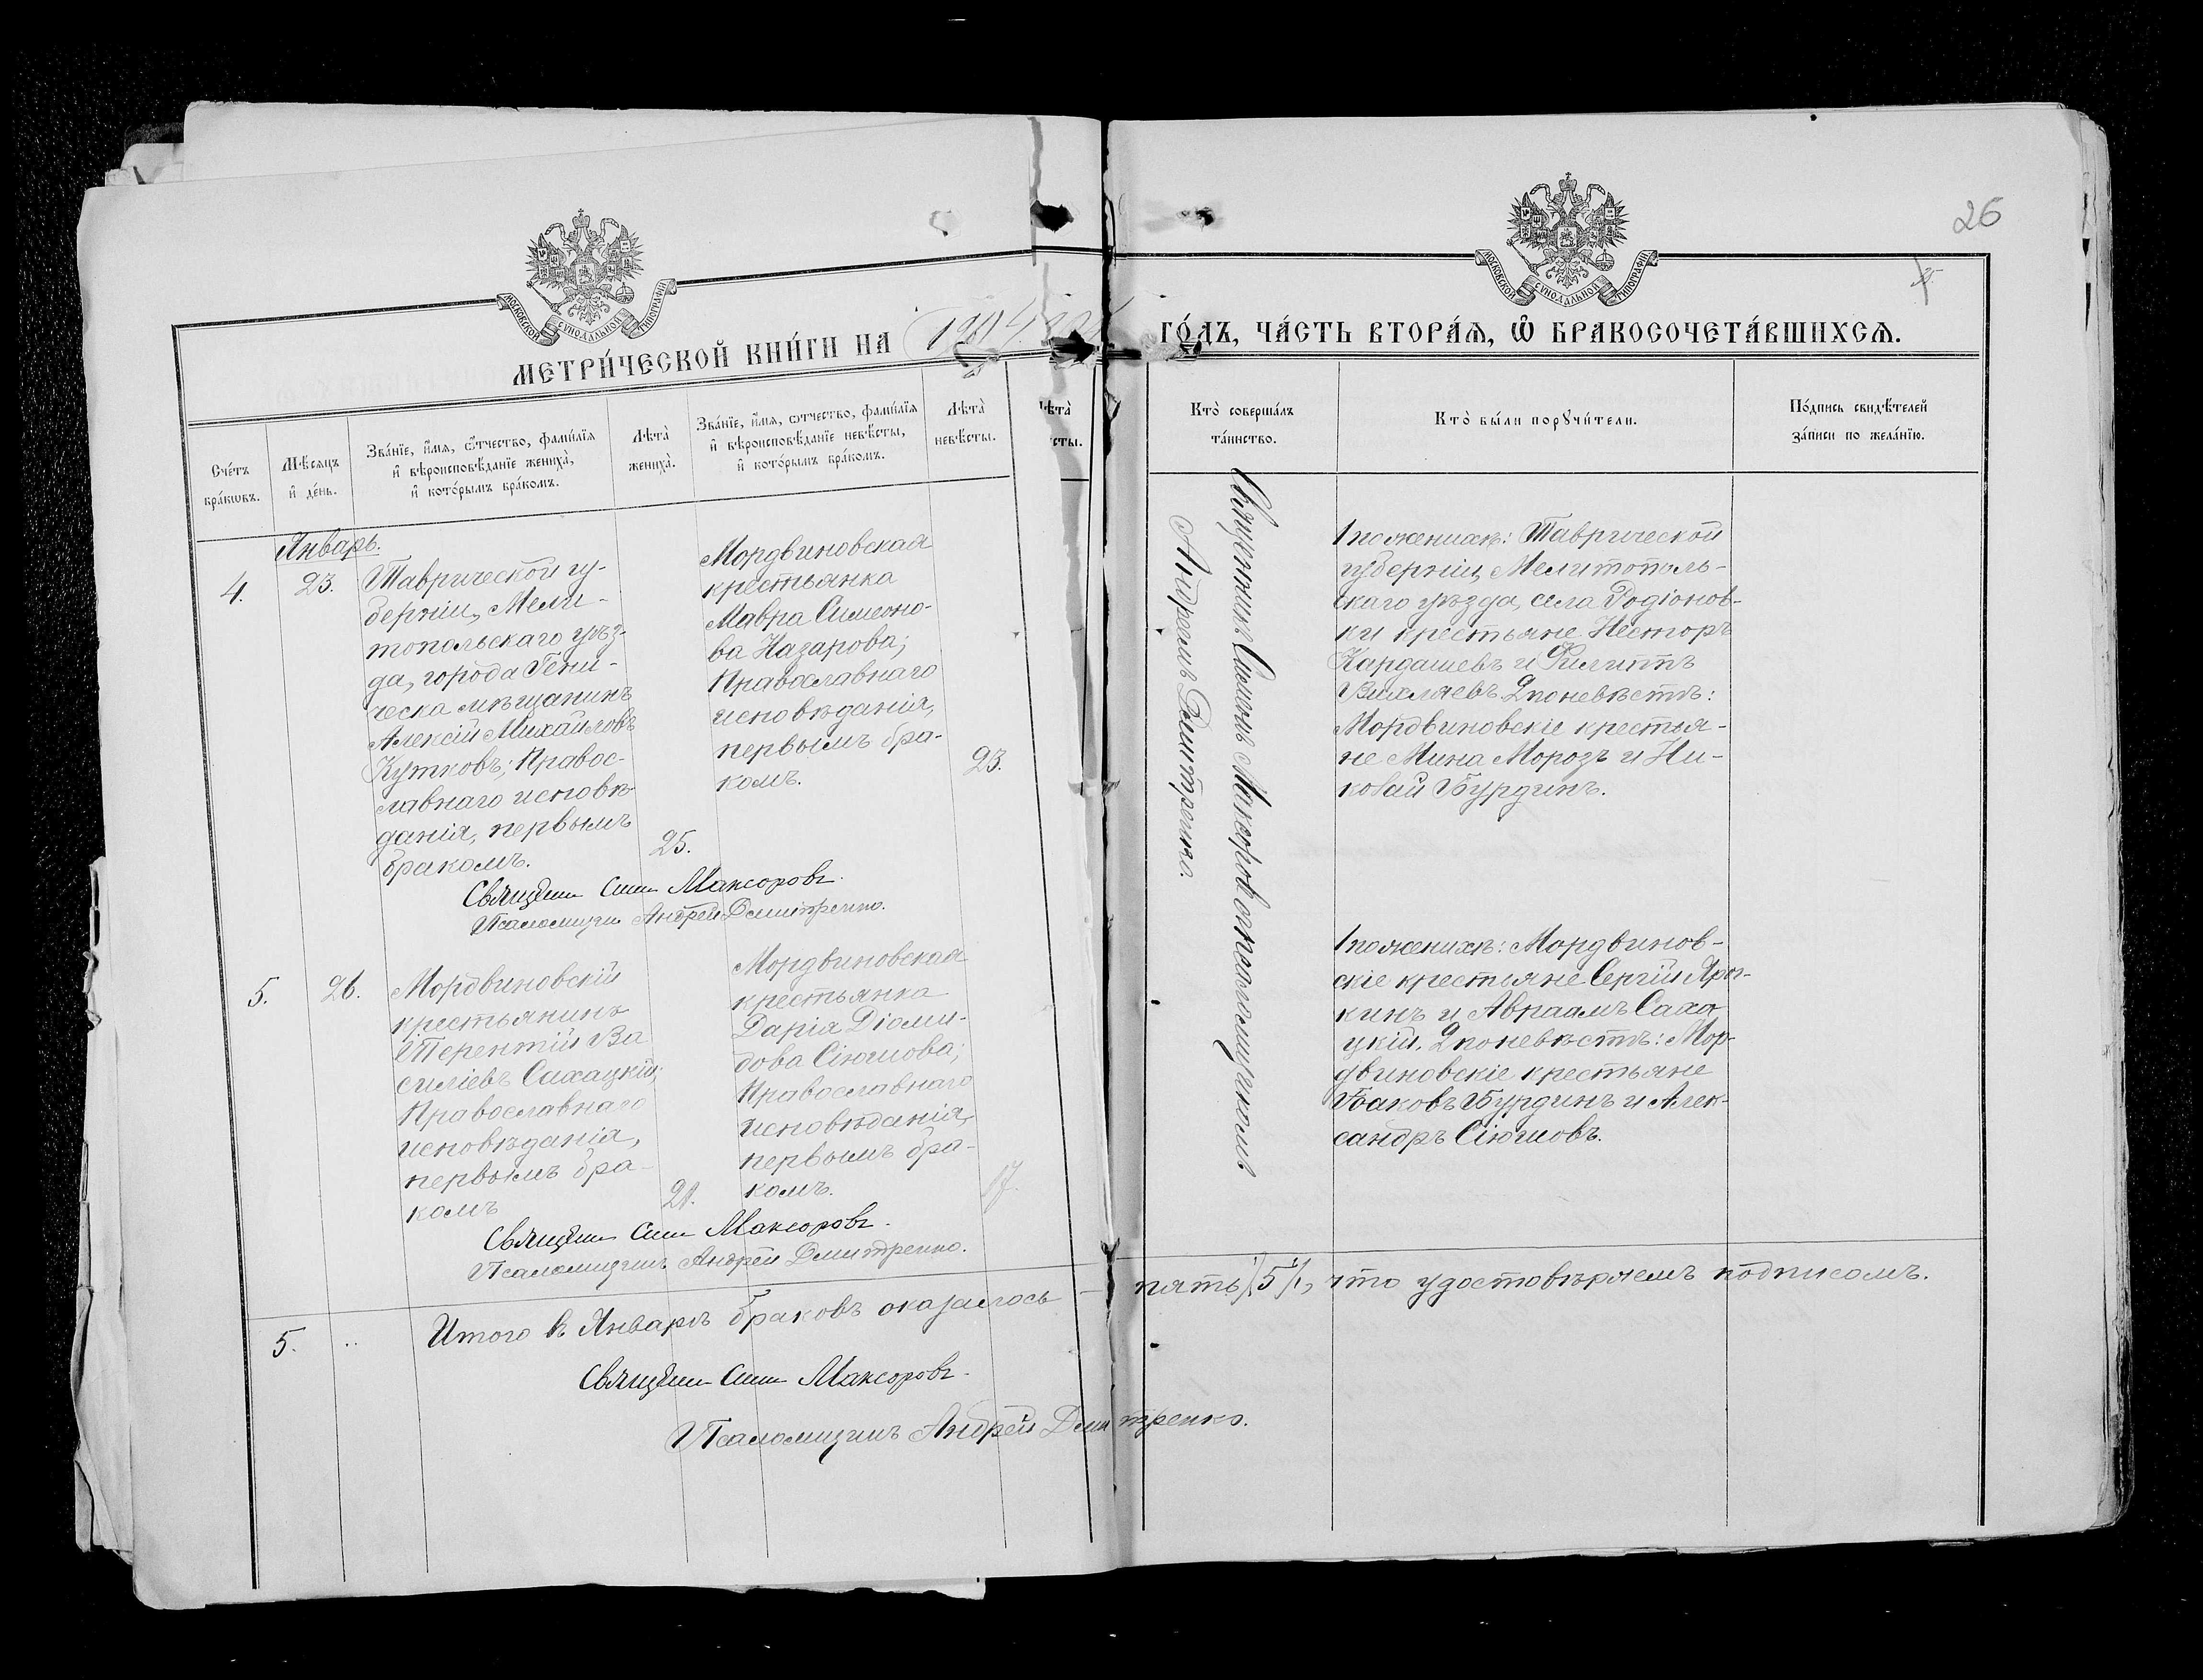 26
МОСКОВСКОЙ СУНОДАЛЬНОЙ ТИПОГРАФІИ
МОСКОВСКОЙ СУНОДАЛЬНОЙ ТИПОГРАФІИ
МЕТРИ́ЧЕСКОЙ КНИ́ГИ НА
ГО́ДЪ, ЧА́СТЬ ВТОРА́Я, Ѡ҆ БРАКОСОЧЕТА́ВШИХСЯ.
Сче́тъ
бра́ковъ.
Мѣ́сяцъ
и҆ де́нь.
Зва́нїе, и҆́мя, ѻ҆́тчество, фами́лїя
и҆ вѣроисповѣ́данїе жениха̀,
и҆ кото́рымъ бра́комъ.
Лѣта̀
жениха̀.
Зва́нїе, и҆́мя, ѻ҆́тчество, фами́лїя
и҆ вѣроисповѣ́данїе невѣ́сты,
и҆ кото́рымъ бра́комъ.
Лѣта̀
невѣ́сты.
Кто̀ соверша́лъ
та́инство.
Кто̀ бы́ли порꙋчи́тели.
По́дпись свидѣ́телей
за́писи по жела́нїю.
Январь.
4.
23.
Таврической гу-
берніи, Мели-
топольскаго уѣз-
да, города Гени-
ческа мѣщанинъ
Алексій Михайловъ
Кутковъ; Правос-
лавнаго исповѣ-
данія, первымъ
бракомъ.
25.
Мордвиновская
крестьянка
Мавра Симеоно-
ва Назарова;
Православнаго
исповѣданія,
первымъ бра-
комъ.
23.
Священникъ Симеонъ Максоровъ съ псаломщикомъ
Андреемъ Дмитренко.
По женихѣ: Таврической
губерніи, Мелитополь-
скаго уѣзда, села Родіонов-
ки крестьяне Несторъ
Кардашевъ и Филиппъ
Вихляевъ. По невѣстѣ:
Мордвиновскіе крестья-
не Мина Морозъ и Ни-
колай Бурдинъ.
Максоровъ.
Псаломщикъ Андрей Дмитренко.
5.
26.
Мордвиновскій
крестьянинъ
Терентій Ва
силіевъ Сахацкій;
Православнаго
исповѣданія,
первымъ бра-
комъ
21.
Мордвиновская
крестьянка
Дарія Діоми-
дова Сіюшова;
Православнаго
исповѣданія,
первымъ бра-
комъ.
17.
По женихѣ: Мордвинов-
скіе крестьяне Сергій
и Авраамъ Саха
цкій. По невѣстѣ: Мор-
двиновскіе крестьяне
Іаковъ Бурдинъ и Алек-
сандръ Сіюшовъ.
Максоровъ.
Псаломщикъ Андрей Дмитренко.
5.
Итого въ Январѣ браковъ оказалось — пять /5/, что удостовѣряемъ подписомъ.
Максоровъ.
Псаломщикъ Андрей Дмитренко.